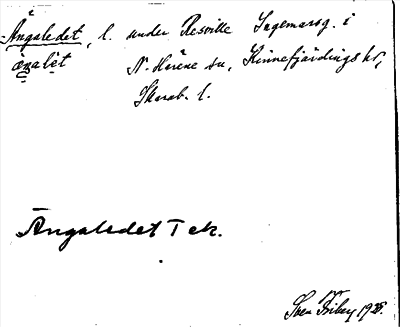 Ängaledet, l. under Resville Ingemarsg. i
äŋalèt N. Härene sn, Kinnefjärdings hd,
Skarab. l.
Ängaledet T ek.
Sven Friberg 1938.